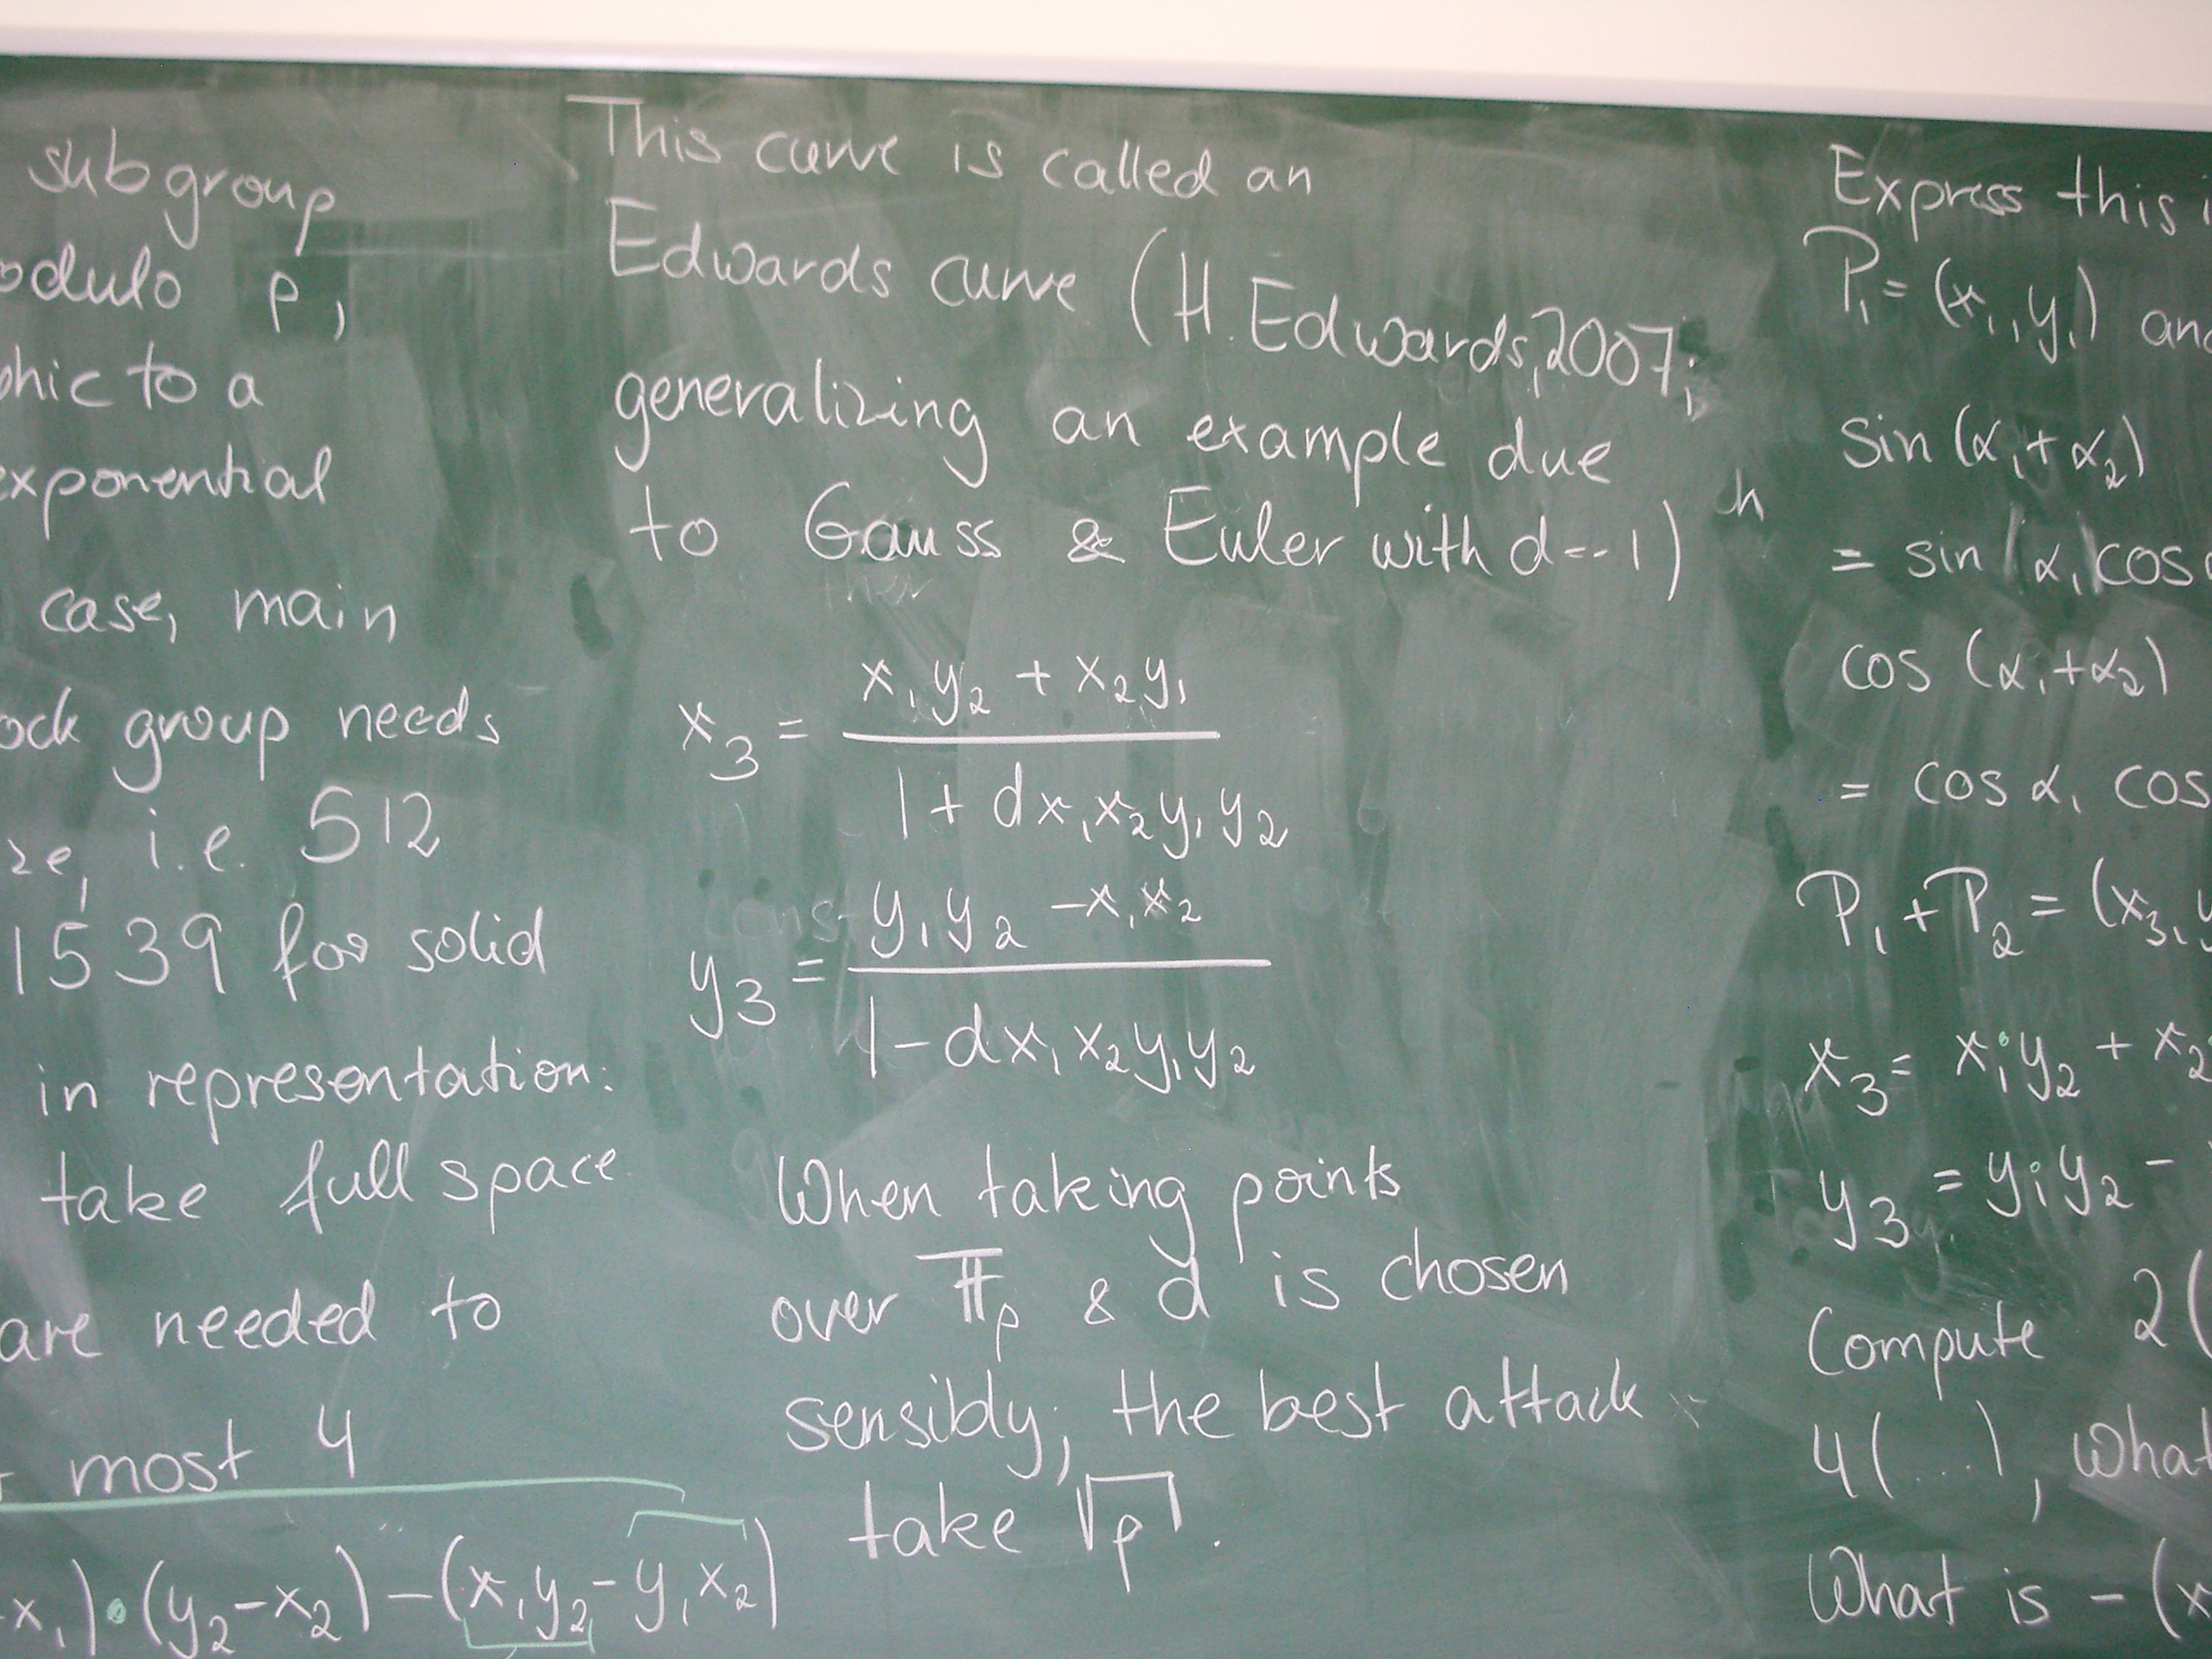 subgroup
odulo p,
phic to a
exponential
case, main
ock group needs
ze, i.e. 512
1539 for solid
in representation:
take full space
are needed to
most 4
x₁)•(y₂-x₂)-(x₁y₂-y₁x₂)
This curve is called an
Edwards curve (H. Edwards, 2007;
generalizing an example due
to Gauss & Euler with d=-1)
x₃ = (x₁y₂ + x₂y₁) / (1 + dx₁x₂y₁y₂)
y₃ = (y₁y₂ - x₁x₂) / (1 - dx₁x₂y₁y₂)
When taking points
over 𝔽p & d is chosen
sensibly, the best attack
take √p.
h
Express this i
P₁ = (x₁, y₁) and
sin (α₁+α₂)
= sin (α₁) cos
cos (α₁+α₂)
= cos α₁ cos
P₁ + P₂ = (x₃, y
x₃ = x₁y₂ + x₂
y₃ = y₁y₂ -
Compute 2(
4(...), What
What is -(x